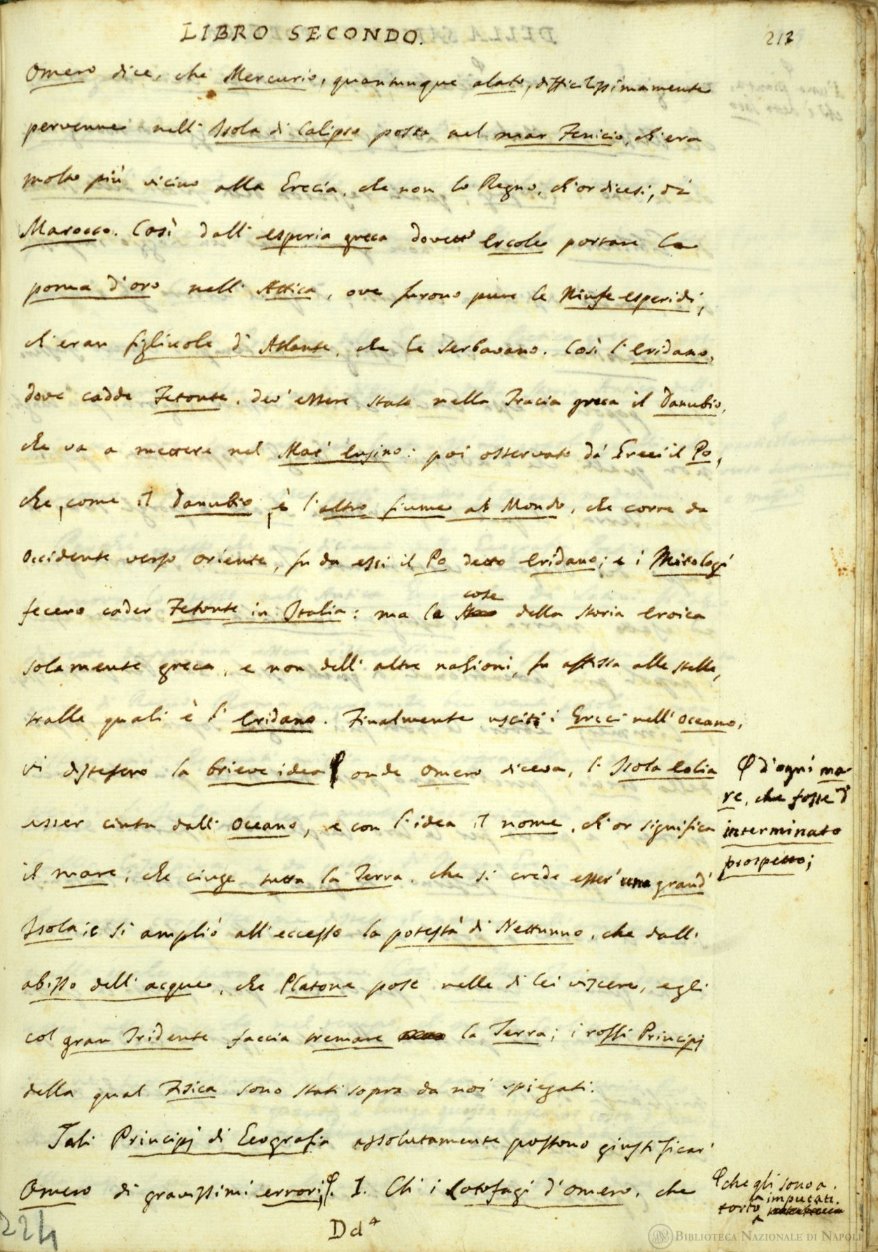 LIBRO SECONDO.
213
Omero dice, che Mercurio, quantunque alato, difficilissimamente
pervenne nell' Isola di Calipso posta nel mar Fenicio, ch'era
molto più vicino alla Grecia, che non lo Regno, ch'or dicesi, di
Marocco. Così dall' esperia greca dovett' Ercole portare le
poma d'oro nell' Attica, ove furono pure le Ninfe esperidi,
ch'eran figliuole d' Atlante, che le serbavano. Così l'Eridano,
dove cadde Fetonte, dev' essere stato nella Tracia greca il Danubio,
che va a mettere nel Mar' eusino: poi osservato da' Greci il Po,
che, come il Danubio, è l'altro fiume al Mondo, che corre da
Occidente verso oriente, fu da essi il Po detto Eridano; e i Mitologi
fecero cader Fetonte in Italia: ma le cose della storia eroica
solamente greca, e non dell' altre nazioni, fu affissa alle stelle,
tralle quali è l' Eridano. Finalmente usciti i Greci nell' Oceano,
vi distesero la brieve idea φ onde Omero diceva, l' Isola eolia
φ d'ogni ma
re, che fosse d'
interminato
prospetto;
esser cinta dall' Oceano, e con l'idea il nome, ch'or significa
il mare, che cinge tutta la Terra, che si crede esser' una grand'
Isola: e si ampliò all' eccesso la potestà di Nettunno, che dall'
abisso dell' acque, che Platone pose nelle di lei viscere, egli
col gran Tridente faccia tremare la Terra; i rossi Principj
della qual Fisica sono stati sopra da noi spiegati.
Tali Principj di Geografia assolutamente possono giustificar'
Omero di gravissimi errori, φ. I. Ch' i Lotofagi d'Omero, che
φ che gli sono a
torto imputati.
Dd 4
224
BIBLIOTECA NAZIONALE DI NAPOLI